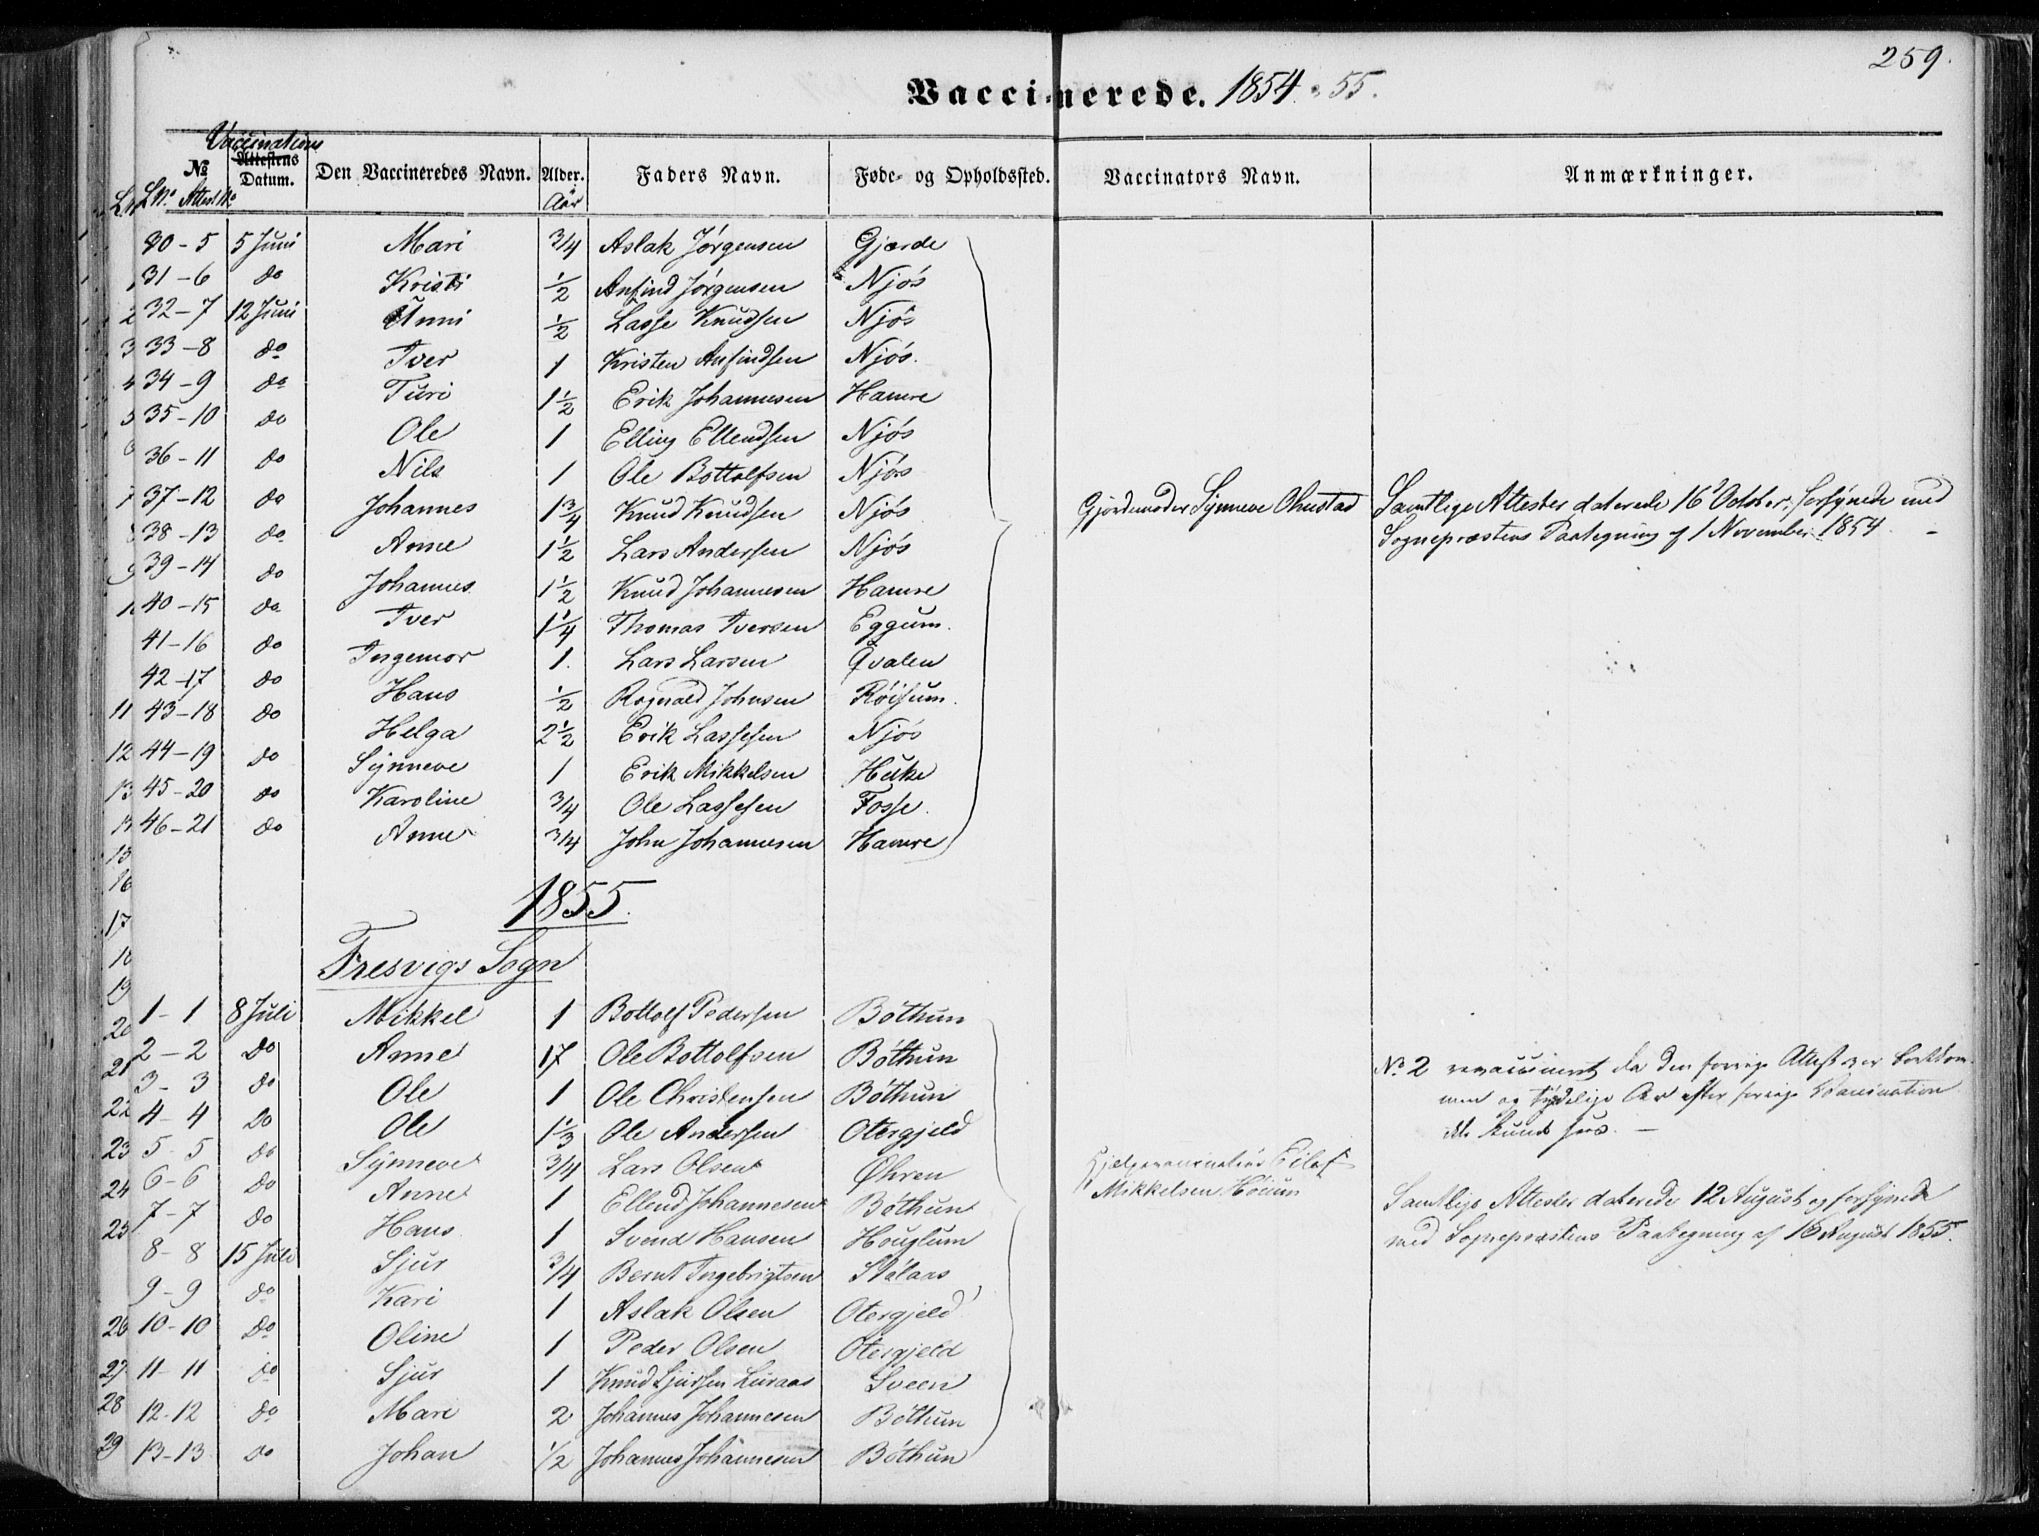 259.
Vaccinerede. 1854-55.
Vaccinations
№ Attestens Datum. Den Vaccineredes Navn. Alder. Faders Navn. Føde- og Opholdssted. Vaccinators Navn. Anmærkninger.
L.№ Attest.№ Aar
30-5 5 Juni Mari 3/4 Aslak Jørgensen Gjærde
31-6 do Kristi 1/2 Anfind Jørgensen Njøs
32-7 12 Juni Unni 1/2 Lasse Knudsen Njøs
33-8 do Iver 1 Kristen Anfindsen Njøs.
34-9 do Turi 1 1/2 Erik Johannesen Hamre
35-10 do Ole 1 Elling Ellendsen Njøs
36-11 do Nils 1 Ole Bottolfsen Njøs
37-12 do Johannes 1 3/4 Knud Knudsen Njøs Gjordemoder Synneve Ohnstad Samtlige Attester daterede 16 October, forsynede med
38-13 do Anne 1 1/2 Lars Andersen Njøs Sognepræstens Paategning af 1 November 1854. -
39-14 do Johannes 1 1/2 Knud Johannesen Hamre
40-15 do Iver 1 1/4 Thomas Iversen Eggum.
41-16 do Ingemor 1. Lars Larsen Qvalen
42-17 do Hans 1/2 Rognald Johnsen Røisum.
43-18 do Helga 2 1/2 Erik Lassesen Njøs
44-19 do Synneve 1 Erik Mikkelsen Huke
45-20 do Karoline 3/4 Ole Lassesen Fosse.
46-21 do Anne 3/4 John Johannesen Hamre
1855.
Fresvigs Sogn
1-1 8 Juli Mikkel 1 Bottolf Pedersen Bøthun
2-2 Do Anne 17 Ole Bottolfsen Bøthun № 2 revaccineret da den forrige Attest er bortkom-
3-3 do Ole 1 Ole Christensen Bøthun men og tydelige Ar efter forrige Vaccination
4-4 Do Ole 1 1/3 Ole Andersen Otergjeld ikke kunde sees. -
5-5 do Synneve 3/4 Lars Olsen Øhren Hjelpevaccinatør Eilef
6-6 Do Anne 1 Ellend Johannesen Bøthun Mikkelsen Høium Samtlige Attester daterede 12 August og forsynede
7-7 Do Hans 1 Svend Hansen Houglum med Sognepræstens Paategning af 16 August 1855.
8-8 15 Juli Sjur 3/4 Bernt Ingebrigtsen Stølaas
9-9 do Kari 1 Aslak Olsen Otergjeld
10-10 Do Oline 1 Peder Olsen Otergjeld
11-11 do Sjur 1 Knud Sjursen Luraas Sveen
12-12 do Mari 2 Johannes Johannesen Bøthun
13-13 Do Johan 1/2 Johannes Johannesen Bøthun